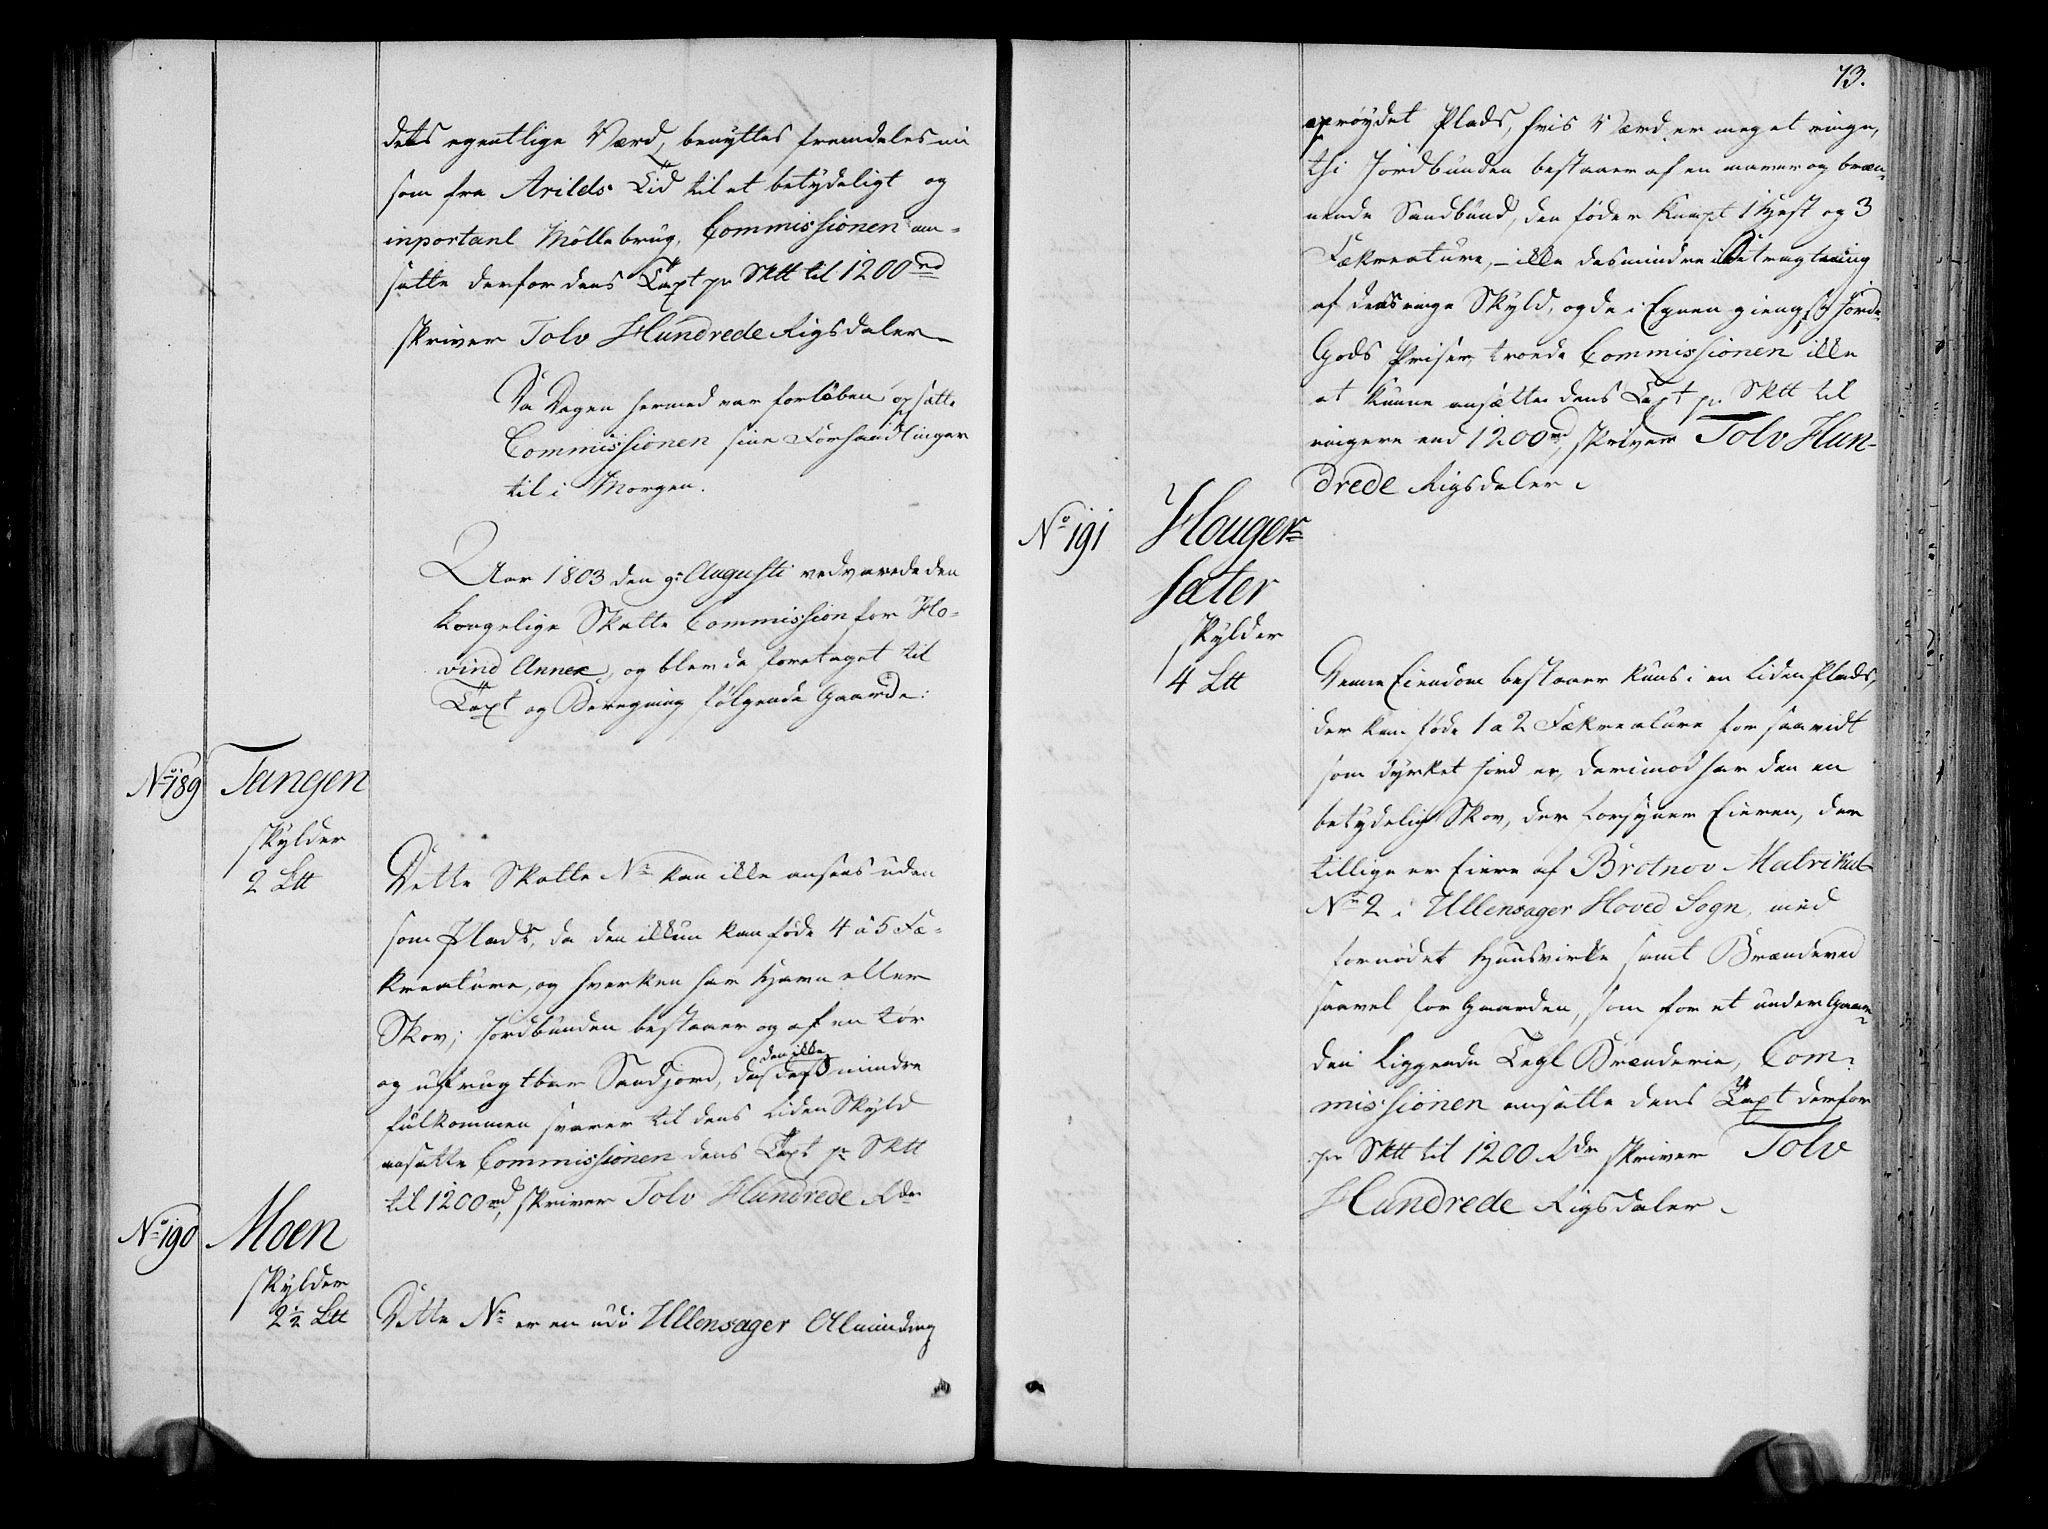 dets egentlige Værd, benyttes fremdeles nu
som fra Arilds Tid til et betydeligt og
inportant Møllebrug, Commissionen an-
satte derfor dens Taxt pr Sktt til 1200 rd
skriver Tolv Hundrede Rigsdaler
Da Dagen hermed var forløben opsatte
Commissionen sine Forhandlinger
til i Morgen.
Aar 1803 den 9: Augusti vedvarede den
kongelige Skatte Commission for Ho-
vind Annex, og blev da foretaget til
Taxt og Beregning følgende Gaarde:
No 189
Tangen
skylder
2 Ltt
Dette Skatte No kan ikke ansees uden
som Plads, da den ikkun kan føde 4 a 5 Fæ-
kreature, og hverken har Havn eller
Skov; Jordbunden bestaaer og af en tør
og ufrugtbar Sandjord, da den ikke desmindre
fulkommen svarer til dens liden Skyld
ansatte Commissionen dens Taxt pr Sktt
til 1200 rd, skriver Tolv Hundrede Rdr
No 190
Moen
skylder
2 1/2 Ltt
Dette No er en udi Ullensager Alminding
73.
oprøydet Plads, hvis Værd er meget ringe,
thi Jordbunden bestaaer af en maver og bræn-
nende Sandbund, den føder knapt 1 Hest og 3
Fækreature, - ikke desmindre i Betragtning
af dens ringe Skyld, og de i Egnen giengse Jorde
Gods Priser, troede Commissionen ikke
at kunne ansætte dens Taxt pr. Sktt til
ringere end 1200 rd, skriver Tolv Hun-
drede Rigsdaler.
No 191
Houger-
sæter
skylder
4 Ltt
Denne Eiendom bestaaer kuns i en liden Plads,
der kan føde 1 a 2 Fækreature for saavidt
som dyrket Jord er, derimod har den en
betydelig Skov, der forsyner Eieren, der
tillige er Eiere af Brotnov Matrikul
No 2 i Ullensager Hoved Sogn, med
fornødet Huusvirke samt Brændeved
saavel for Gaarden, som for et under Gaar-
den liggende Tegl Brænderie, Com-
missionen ansatte dens Taxt derfor
pr Sktt til 1200 Rdr skriver Tolv
Hundrede Rigsdaler.